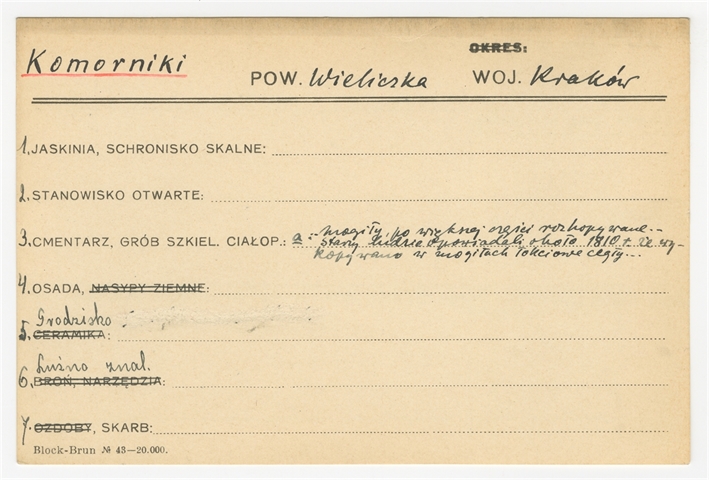 Komorniki
OKRES:
POW. Wieliczka WOJ. Kraków
1. JASKINIA, SCHRONISKO SKALNE:
2. STANOWISKO OTWARTE:
3. CMENTARZ, GRÓB SZKIEL. CIAŁOP.: a "...mogiły, po większej części rozkopywane...
starzy ludzie opowiadali około 1810 r. że wy-
kopywano w mogiłach łokciowe cegły...
4. OSADA, NASYPY ZIEMNE:
Grodzisko
5. CERAMIKA:
Luźno znal.
6. BROŃ, NARZĘDZIA:
7. OZDOBY, SKARB:
Block-Brun № 43—20.000.